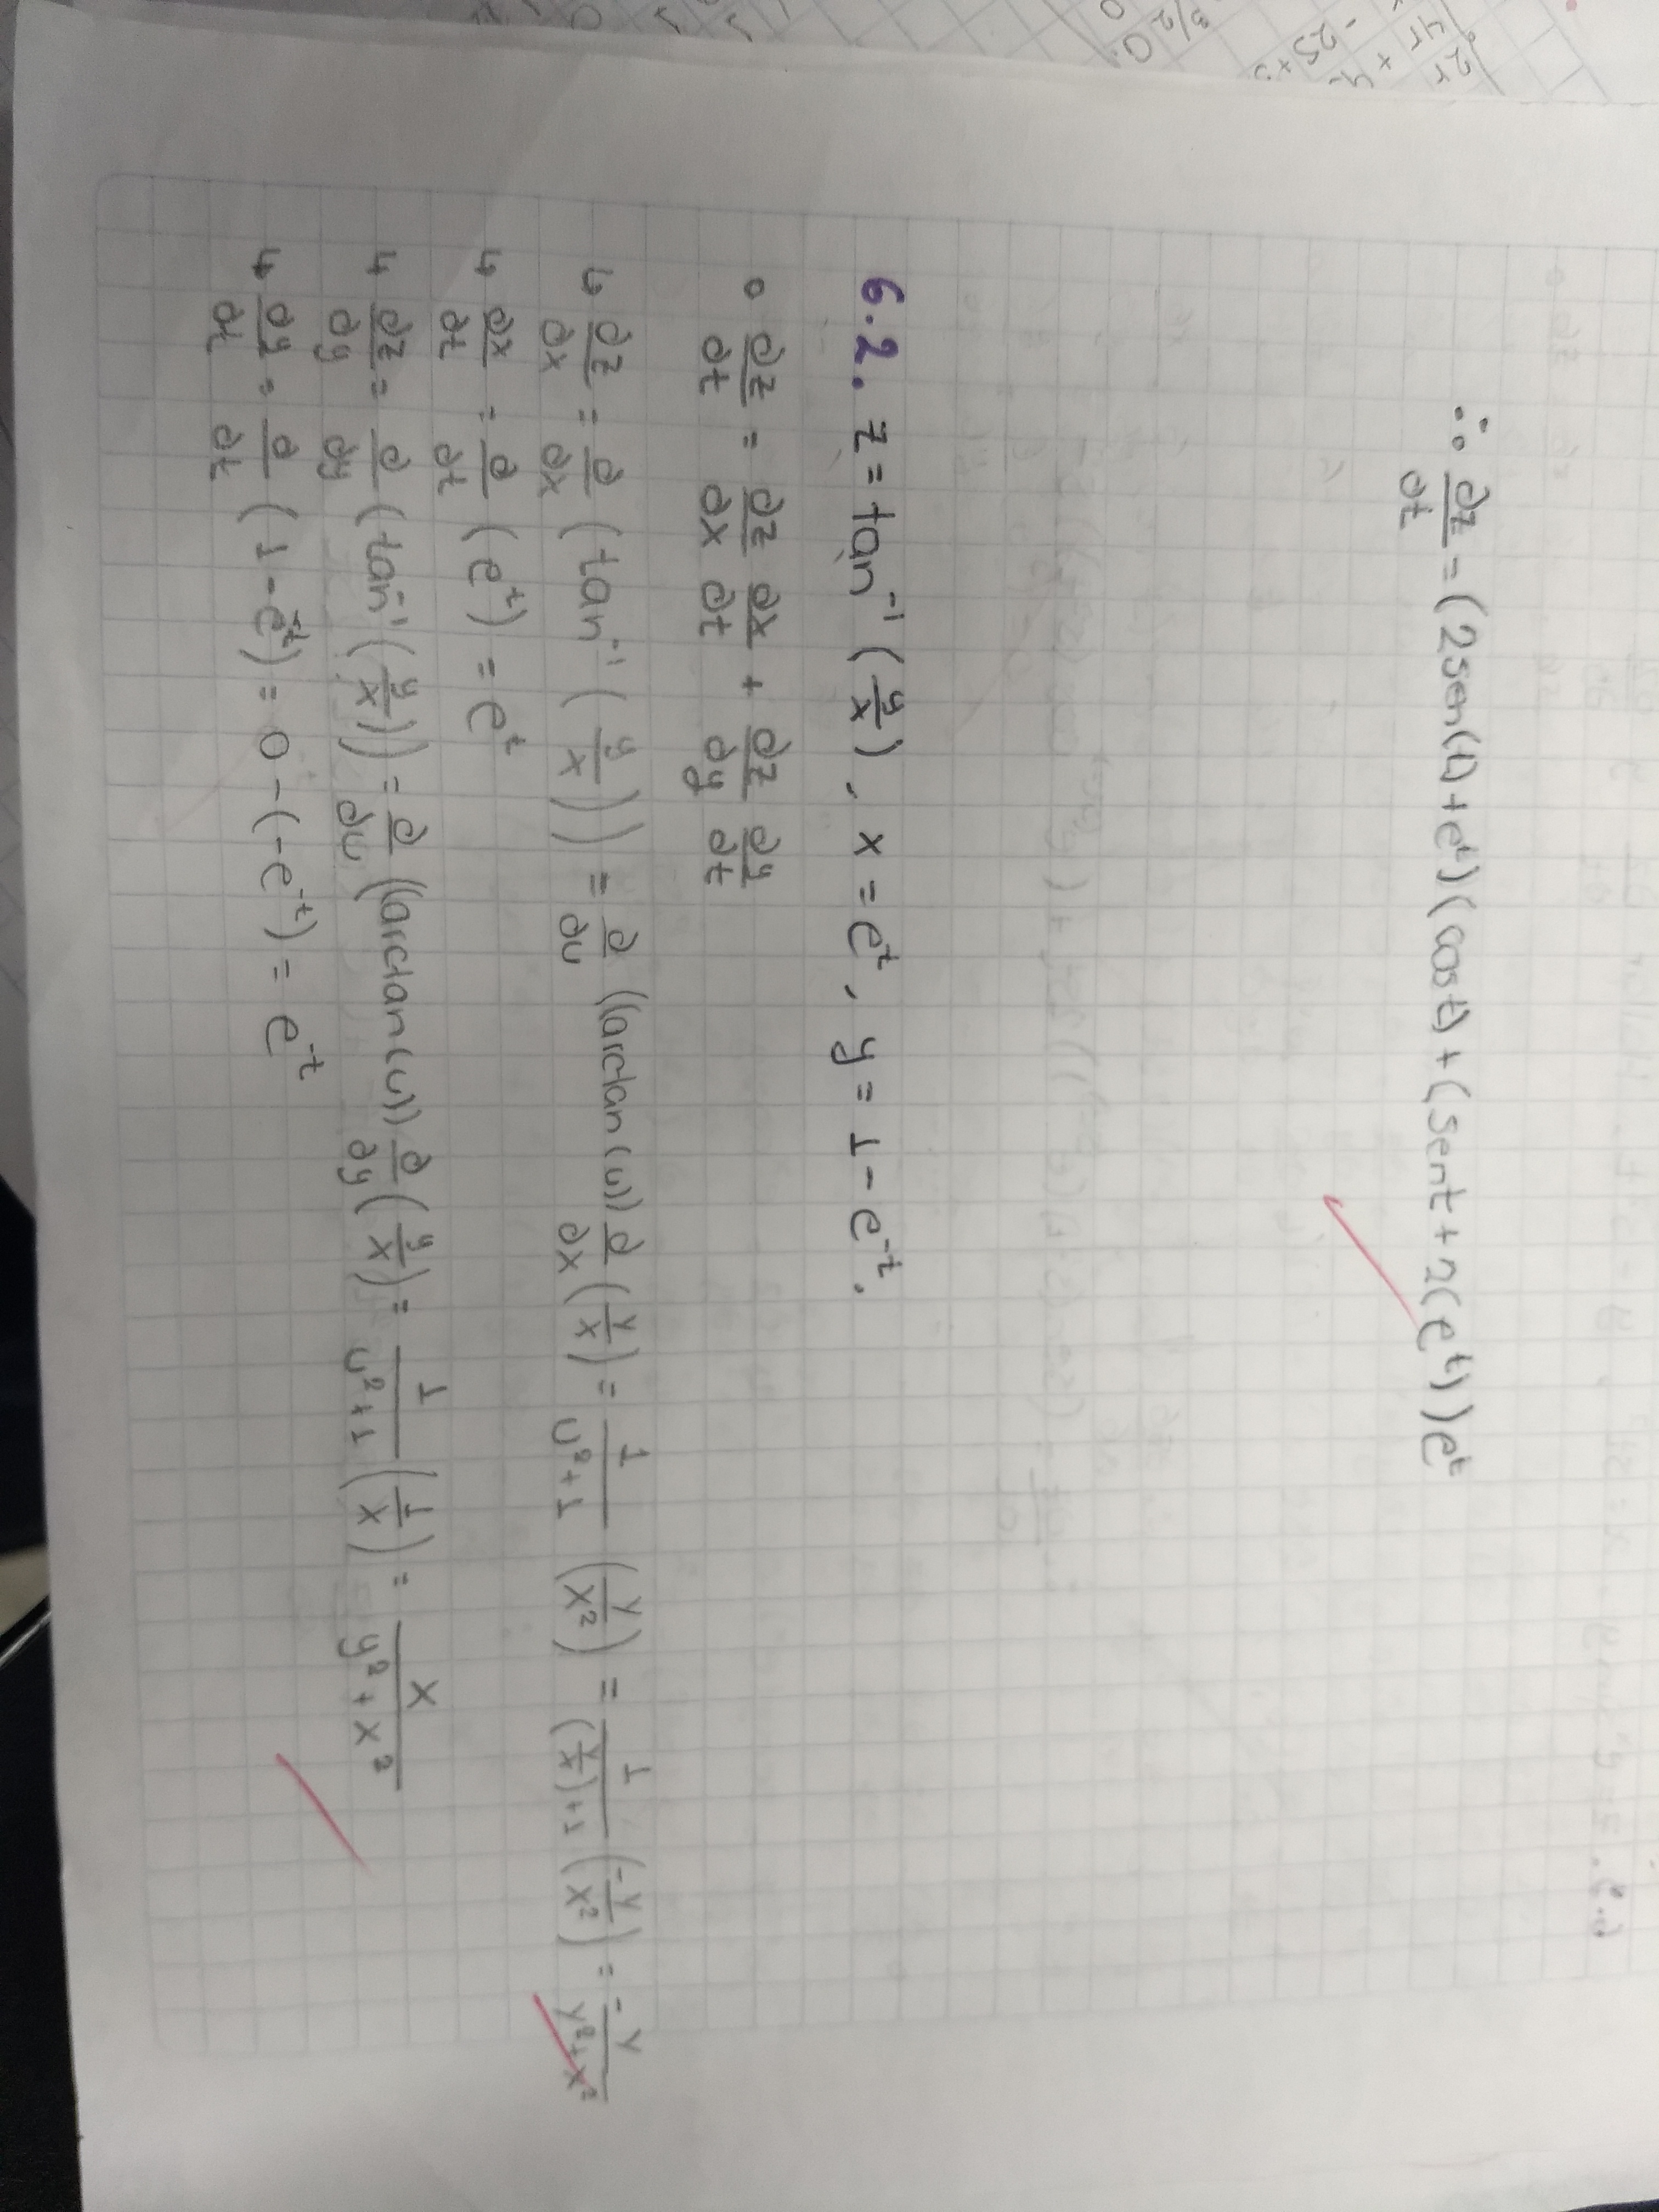 ∴ ∂z/∂t = (2sen(t)+e^t)(cos t) + (sen t + 2(e^t))e^t
6.2. z = tan^-1 (y/x), x = e^t, y = 1 - e^-t.
∘ ∂z/∂t = ∂z/∂x ∂x/∂t + ∂z/∂y ∂y/∂t
↳ ∂z/∂x = ∂/∂x (tan^-1 (y/x)) = ∂/∂u ((arctan(u)) ∂/∂x (y/x) = 1/(u²+1) (y/x²) = 1/((y/x)+1) (-y/x²) = -y/(y²+x²)
↳ ∂x/∂t = ∂/∂t (e^t) = e^t
↳ ∂z/∂y = ∂/∂y (tan^-1 (y/x)) = ∂/∂u ((arctan(u)) ∂/∂y (y/x) = 1/(u²+1) (1/x) = x/(y²+x²)
↳ ∂y/∂t = ∂/∂t (1 - e^-t) = 0 - (-e^-t) = e^-t